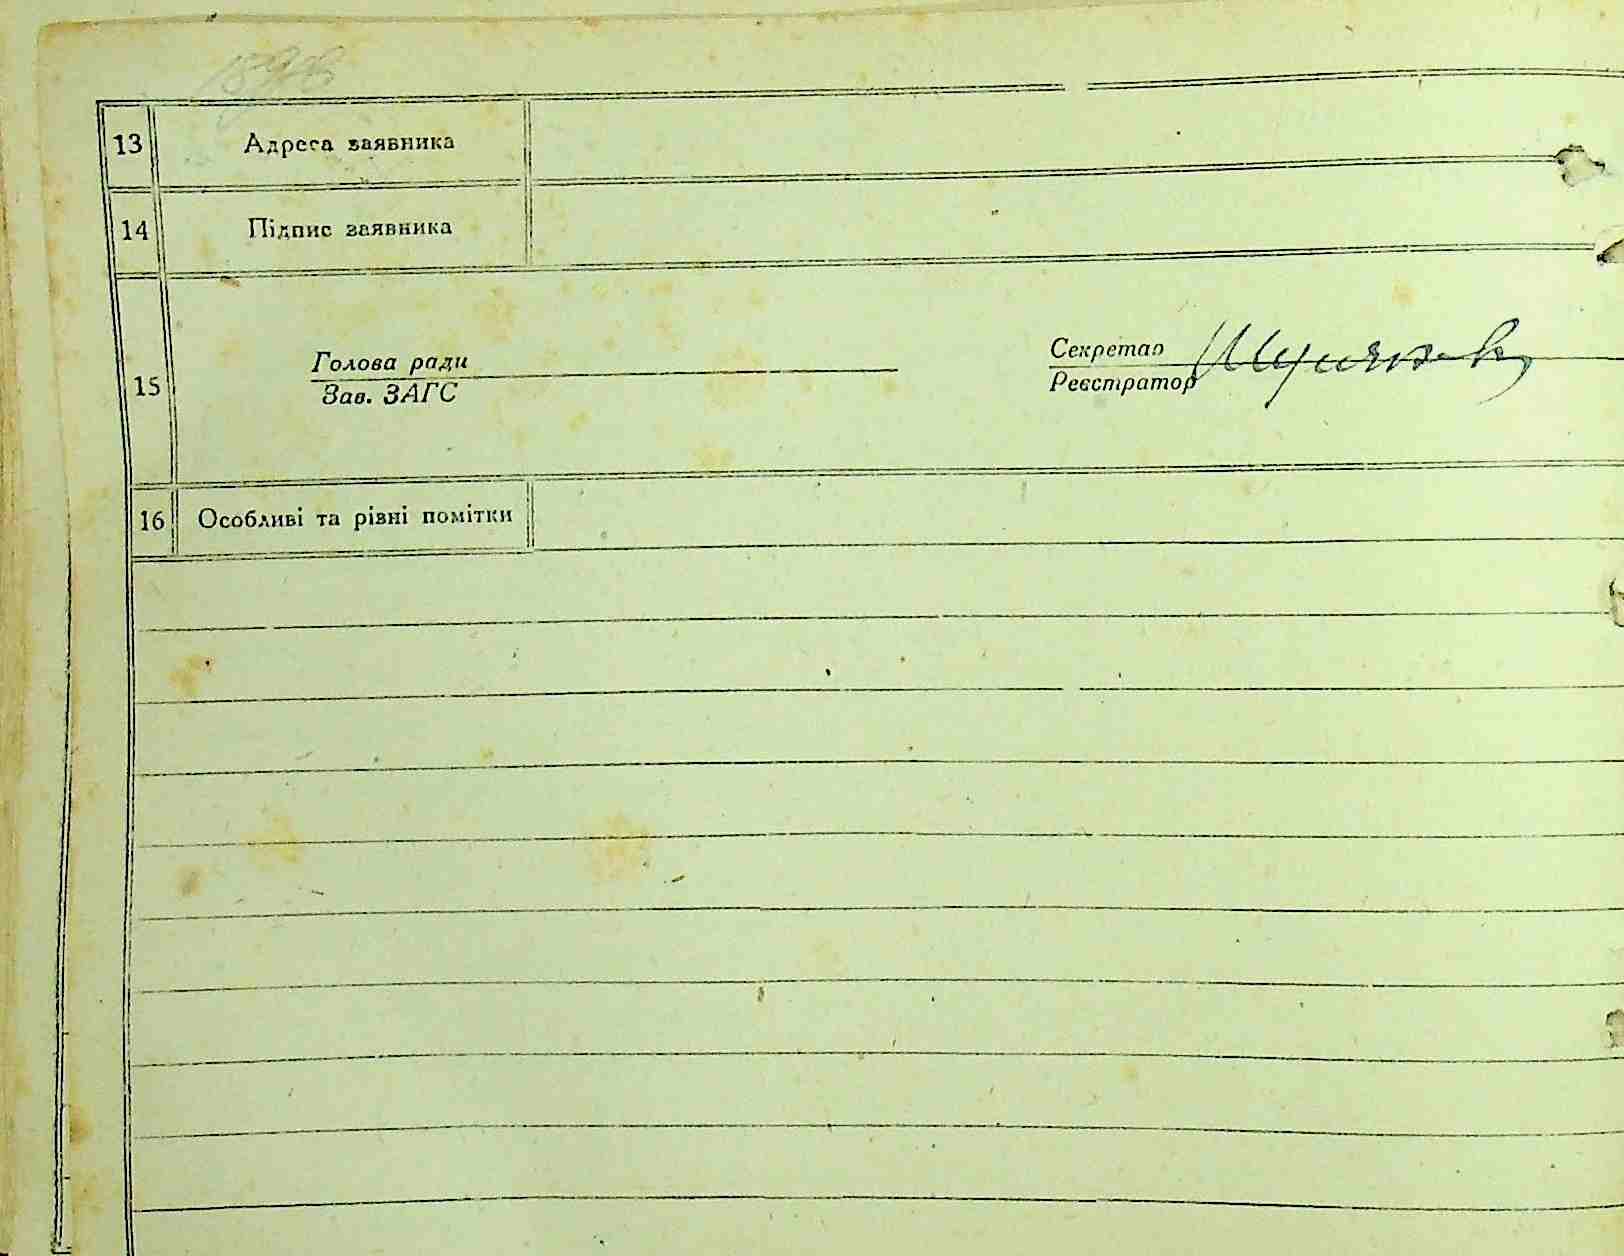 13 Адреса заявника
14 Підпис заявника
15
Голова ради
Зав. ЗАГС
Секретар
Реєстратор
16 Особливі та рівні помітки